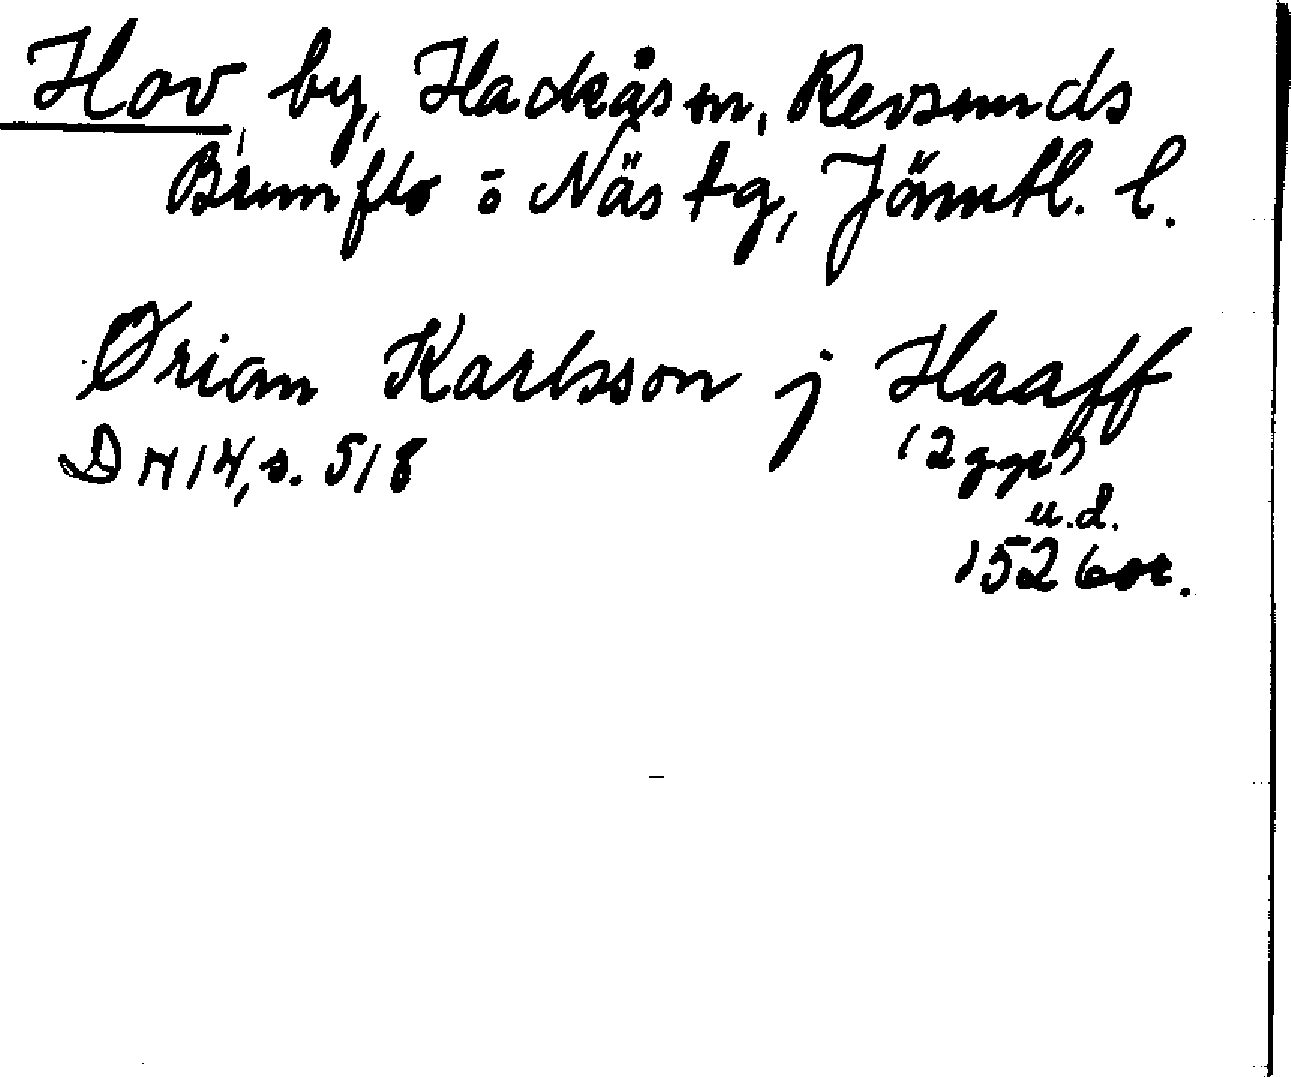 Hov, by, Hackås sn, Revsunds
Brunflo o Näs tg, Jämtl. l.
Ørian Karlsson j Haaff
DN 14, s. 518 (2 ggr)
u.d.
1526 or.